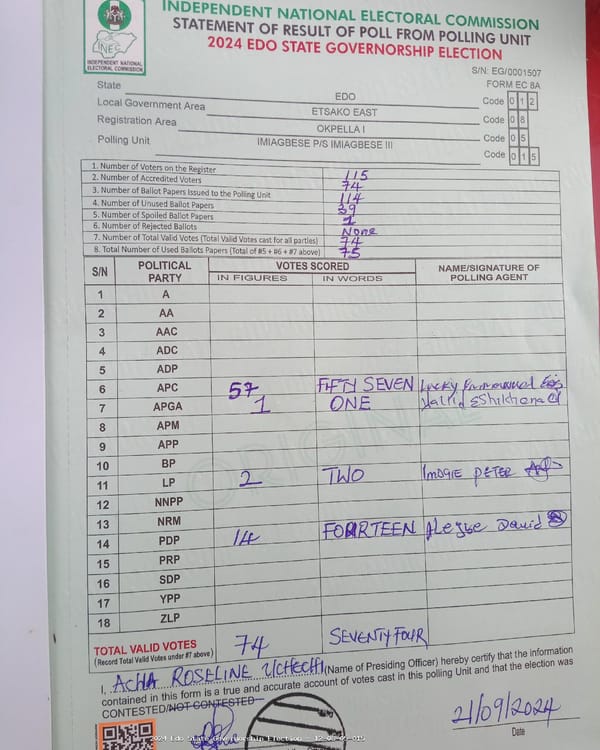 INDEPENDENT NATIONAL ELECTORAL COMMISSION
STATEMENT OF RESULT OF POLL FROM POLLING UNIT
2024 EDO STATE GOVERNORSHIP ELECTION
INEC
INDEPENDENT NATIONAL
ELECTORAL COMMISSION
S/N: EG/0001507
FORM EC 8A
State EDO Code 0 1 2
Local Government Area ETSAKO EAST Code 0 8
Registration Area OKPELLA I Code 0 5
Polling Unit IMIAGBESE P/S IMIAGBESE III Code 0 1 5
1. Number of Voters on the Register 115
2. Number of Accredited Voters 74
3. Number of Ballot Papers Issued to the Polling Unit 114
4. Number of Unused Ballot Papers 39
5. Number of Spoiled Ballot Papers 1
6. Number of Rejected Ballots None
7. Number of Total Valid Votes (Total Valid Votes cast for all parties) 74
8. Total Number of Used Ballots Papers (Total of #5 + #6 + #7 above) 75
S/N POLITICAL PARTY VOTES SCORED NAME/SIGNATURE OF POLLING AGENT
IN FIGURES IN WORDS
1 A
2 AA
3 AAC
4 ADC
5 ADP
6 APC 57 FIFTY SEVEN Lucky Emmanuel
7 APGA 1 ONE
8 APM
9 APP
10 BP
11 LP 2 TWO Imogie PETER
12 NNPP
13 NRM
14 PDP 14 FOURTEEN David
15 PRP
16 SDP
17 YPP
18 ZLP
TOTAL VALID VOTES 74 SEVENTY FOUR
(Record Total Valid Votes under #7 above)
I, ACHA ROSELINE UCHECHI (Name of Presiding Officer) hereby certify that the information
contained in this form is a true and accurate account of votes cast in this polling Unit and that the election was
CONTESTED/NOT CONTESTED
21/09/2024
Date
2024 Edo State Governorship Election - 12-08-05-015